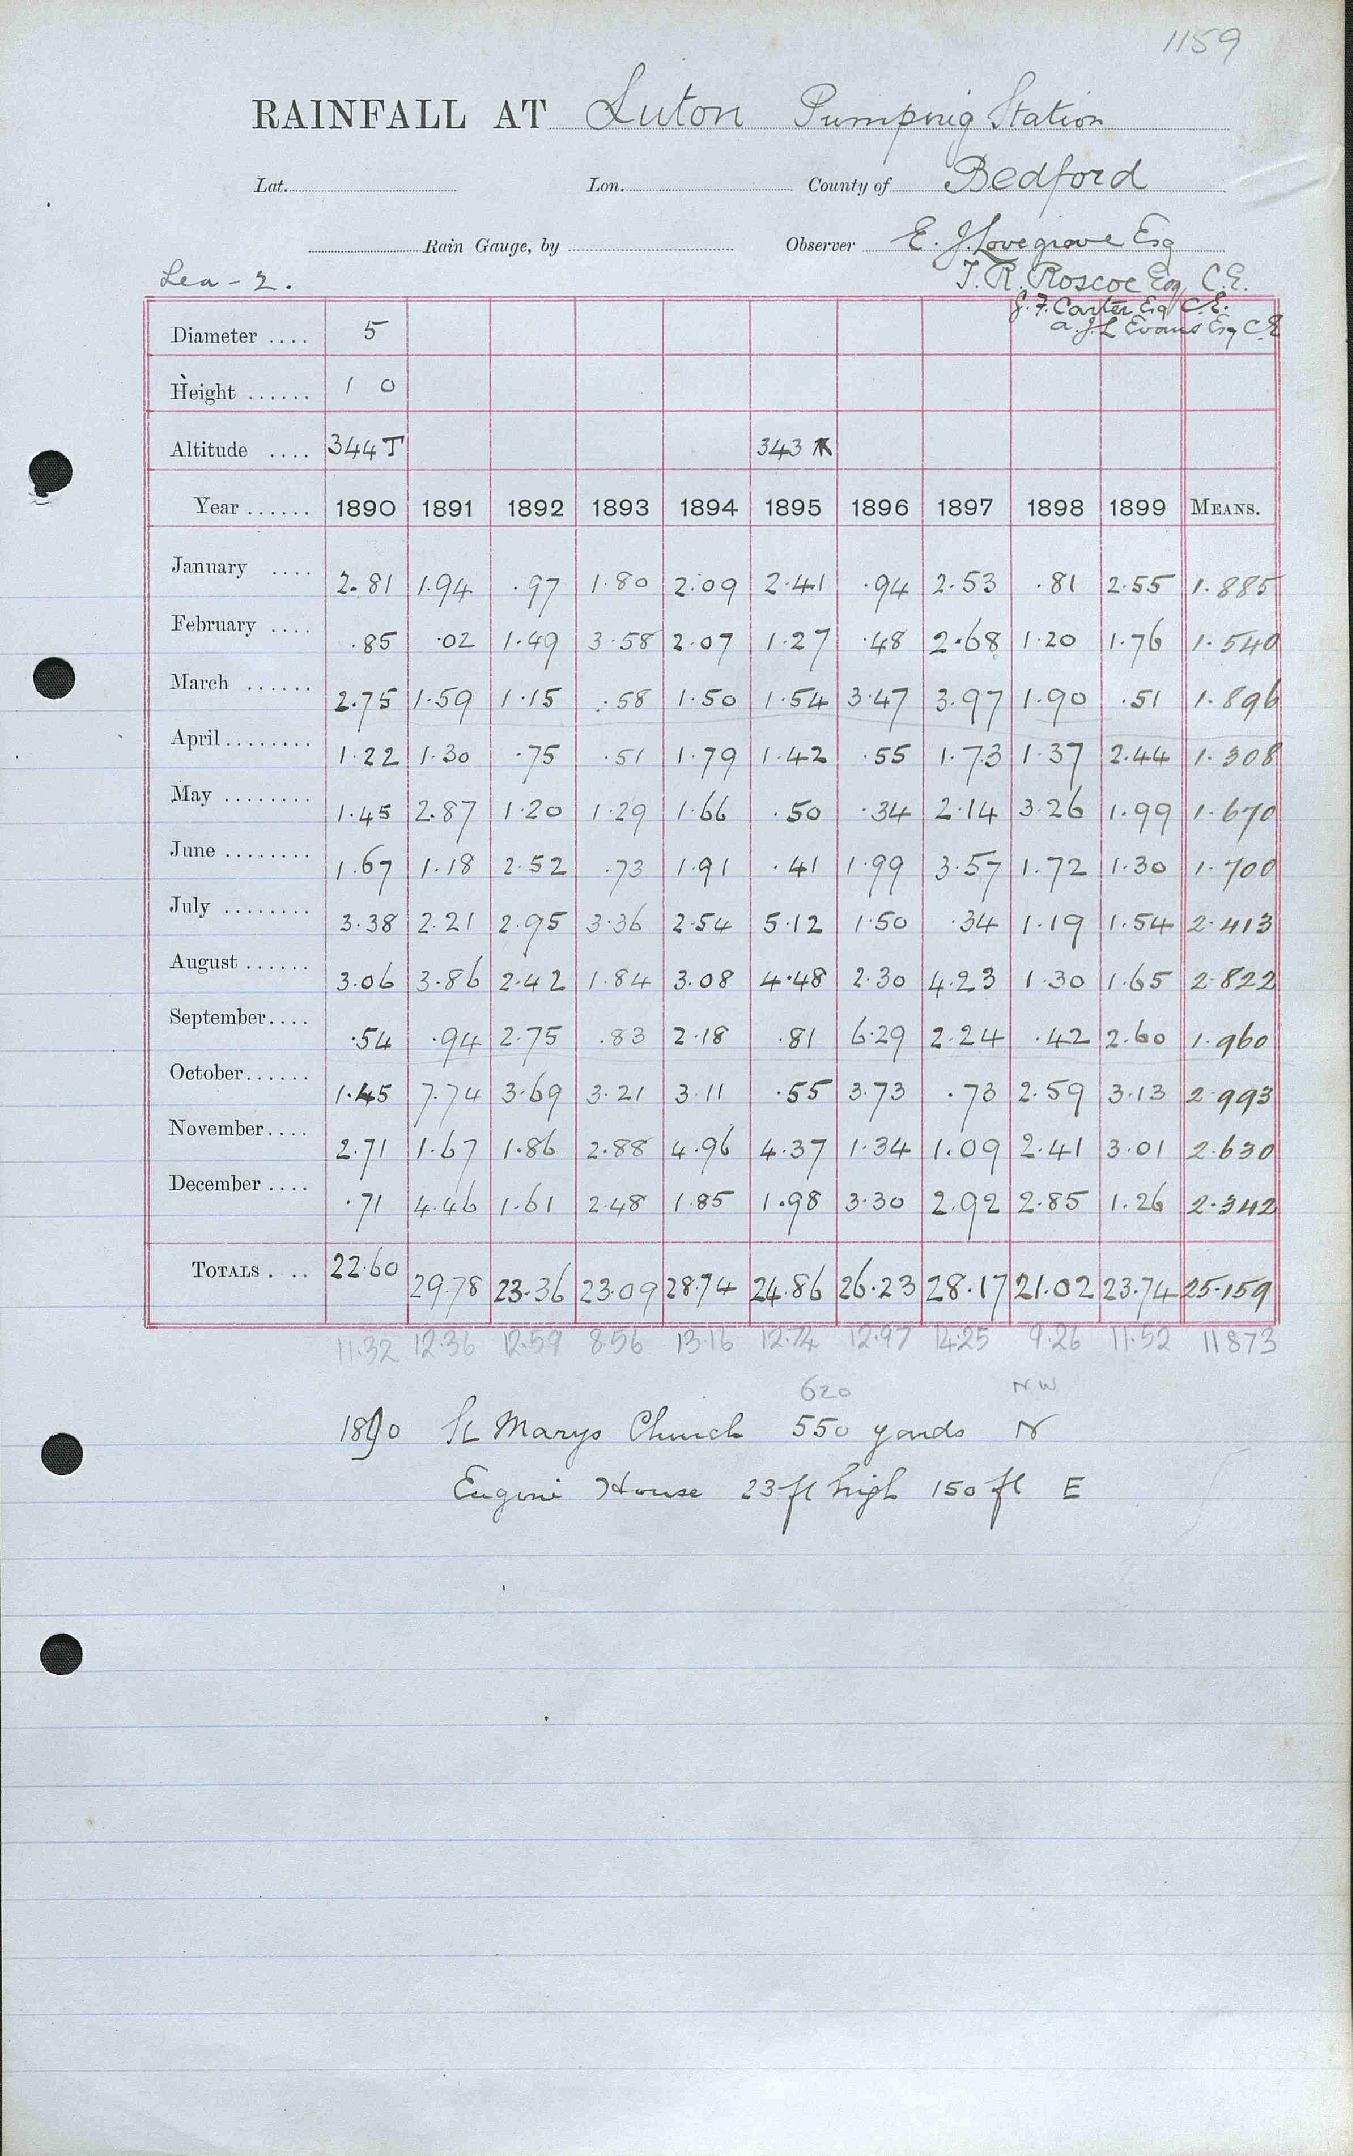 1159
RAINFALL AT Luton Pumping Station
Lat. Lon. County of Bedford
Rain Gauge, by Observer E. J. Lovegrove Esq
Lea - 2. T. R. Roscoe Esq, C.E.
J. F. Carter Esq C.E.
A. J. L Evans Esq C.E
Diameter .... 5
Height ...... 1 0
Altitude .... 344 T 343
Year ...... 1890 1891 1892 1893 1894 1895 1896 1897 1898 1899 MEANS.
January .... 2.81 1.94 .97 1.80 2.09 2.41 .94 2.53 .81 2.55 1.885
February .... .85 .02 1.49 3.58 2.07 1.27 .48 2.68 1.20 1.76 1.540
March ...... 2.75 1.59 1.15 .58 1.50 1.54 3.47 3.97 1.90 .51 1.896
April ........ 1.22 1.30 .75 .51 1.79 1.42 .55 1.73 1.37 2.44 1.308
May ........ 1.45 2.87 1.20 1.29 1.66 .50 .34 2.14 3.26 1.99 1.670
June ........ 1.67 1.18 2.52 .73 1.91 .41 1.99 3.57 1.72 1.30 1.700
July ........ 3.38 2.21 2.95 3.36 2.54 5.12 1.50 .34 1.19 1.54 2.413
August ...... 3.06 3.86 2.42 1.84 3.08 4.48 2.30 4.23 1.30 1.65 2.822
September.... .54 .94 2.75 .83 2.18 .81 6.29 2.24 .42 2.60 1.960
October...... 1.45 7.74 3.69 3.21 3.11 .55 3.73 .73 2.59 3.13 2.993
November.... 2.71 1.67 1.86 2.88 4.96 4.37 1.34 1.09 2.41 3.01 2.630
December .... .71 4.46 1.61 2.48 1.85 1.98 3.30 2.92 2.85 1.26 2.342
TOTALS . .. 22.60 29.78 23.36 23.09 28.74 24.86 26.23 28.17 21.02 23.74 25.159
11.32 12.36 12.59 8.56 13.16 12.74 12.97 14.25 9.26 11.52 11873
620 NW
1890 St Marys Church 550 yards N
Engine House 23 ft high 150 ft E